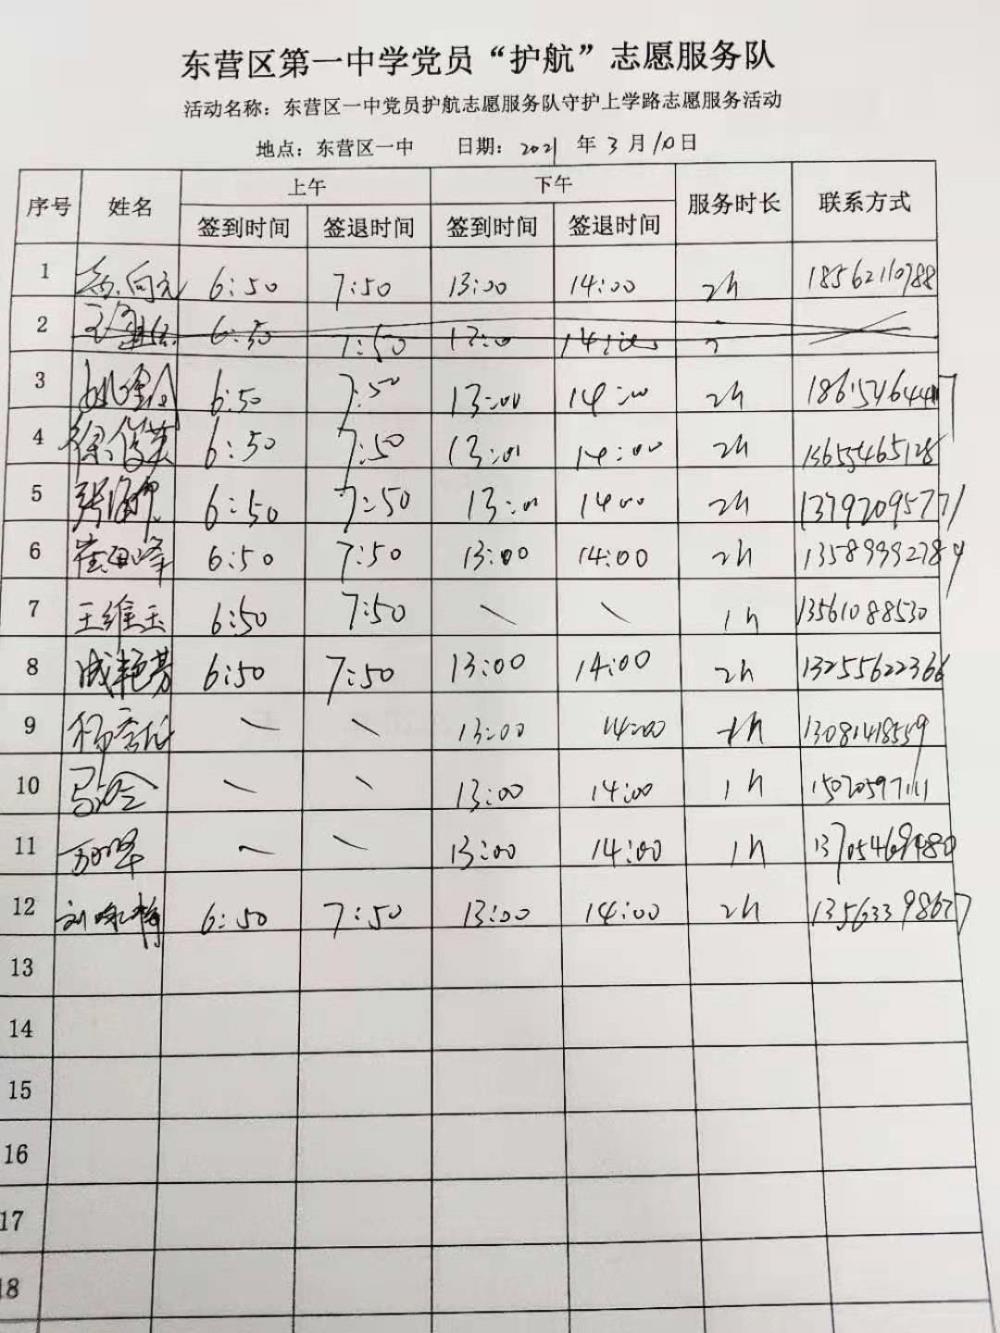 东营区第一中学党员“护航”志愿服务队
活动名称：东营区一中党员护航志愿服务队守护上学路志愿服务活动
地点：东营区一中 日期：2021 年 3 月 10 日
序号 姓名 上午 下午 服务时长 联系方式
签到时间 签退时间 签到时间 签退时间
1 向元 6:50 7:50 13:00 14:00 2h 18562110788
2 6:50 7:50 14:00
3 6:50 7:50 13:00 14:00 2h
4 徐俊英 6:50 7:50 13:00 14:00 2h 13655465128
5 张 6:50 7:50 13:00 14:00 2h 13792095771
6 崔 峰 6:50 7:50 13:00 14:00 2h 13589992784
7 王维玉 6:50 7:50 \ \ 1h 13561088530
8 成艳芳 6:50 7:50 13:00 14:00 2h 13255622366
9 杨 \ \ 13:00 14:00 1h 13081418559
10 \ \ 13:00 14:00 1h
11 \ \ 13:00 14:00 1h 13705469480
12 刘 梅 6:50 7:50 13:00 14:00 2h 13563398677
13
14
15
16
17
18